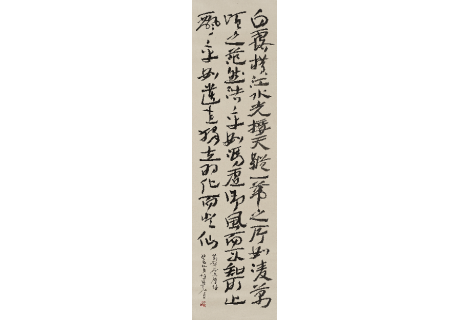 白露横江水光接天縱一葦之所如凌萬
頃之茫然浩々乎如馮虛御風而不知所止
飄々乎如遺世獨立羽化而登仙